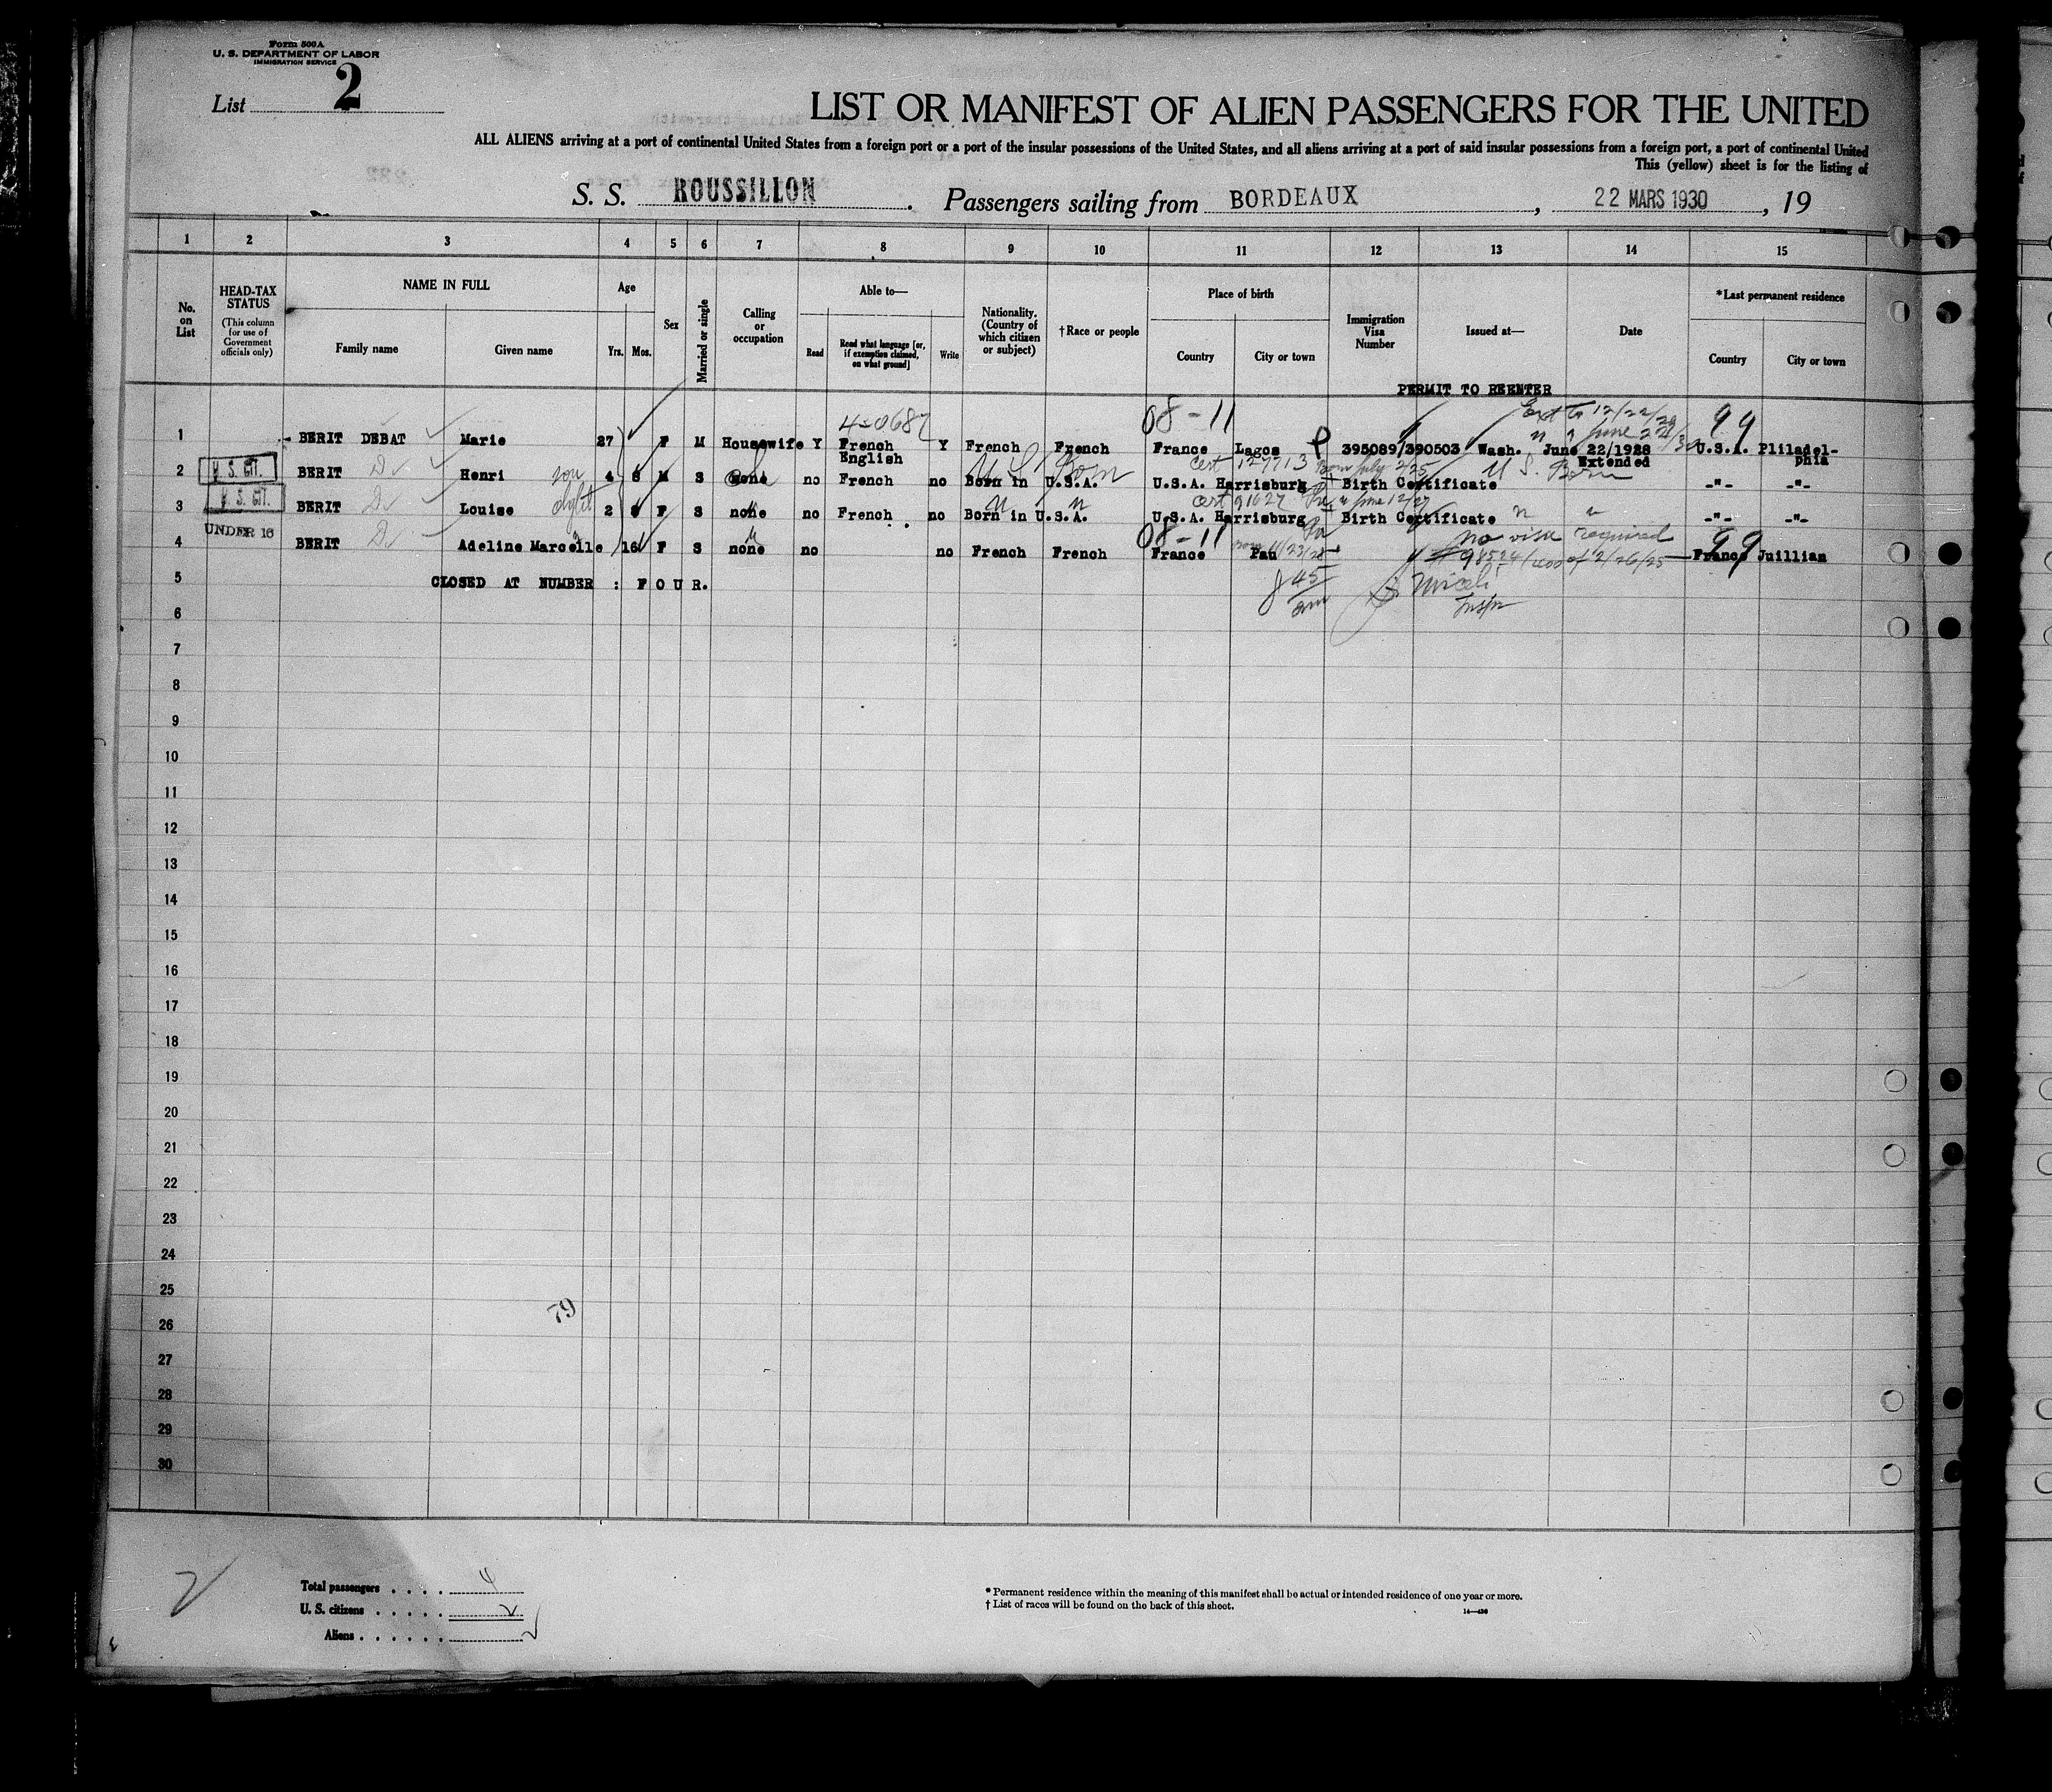 Form 500A
U. S. DEPARTMENT OF LABOR
IMMIGRATION SERVICE
List 2
LIST OR MANIFEST OF ALIEN PASSENGERS FOR THE UNITED
ALL ALIENS arriving at a port of continental United States from a foreign port or a port of the insular possessions of the United States, and all aliens arriving at a port of said insular possessions from a foreign port, a port of continental United
This (yellow) sheet is for the listing of
S. S. ROUSSILLON. Passengers sailing from BORDEAUX, 22 MARS 1930, 19
1 2 3 4 5 6 7 8 9 10 11 12 13 14 15
No. on List
HEAD-TAX STATUS (This column for use of Government officials only)
NAME IN FULL
Family name Given name
Age
Yrs. Mos.
Sex
Married or single
Calling or occupation
Able to—
Read
Read what language [or, if exemption claimed, on what ground]
Write
Nationality. (Country of which citizen or subject)
†Race or people
Place of birth
Country City or town
Immigration Visa Number
Issued at—
Date
*Last permanent residence
Country City or town
PERMIT TO REENTER
Ext to 12/22/29
450687 08-11 99
1 BERIT DEBAT Marie 27 F M Housewife Y French Y French French France Lagos P 395089/390503 Wash. June 22/1928 U.S.A. Pliladel-
English Extended phia
U. S. CIT. U S Born Cert 127713 Born July 2/25 U. S. Born
2 BERIT Dv Henri son 4 8 M S none no French no Born in U.S.A. U.S.A. Harrisburg Birth Certificate -"- -"-
U. S. CIT. cert 91627 Pa " June 12/27
3 BERIT Dv Louise 2 F S none no French no Born in U.S.A. U.S.A. Harrisburg Birth Certificate " " -"- -"-
UNDER 16 08-11 Pa no visa required 99
4 BERIT Dv Adeline Marcelle 16 F S none no no French French France Pau France Juillian
5 CLOSED AT NUMBER : F O U R.
Inspr
6
7
8
9
10
11
12
13
14
15
16
17
18
19
20
21
22
23
24
25
79
26
27
28
29
30
2
Total passengers . . . . 4
U. S. citizens . . . . . 2
Aliens . . . . . .
* Permanent residence within the meaning of this manifest shall be actual or intended residence of one year or more.
† List of races will be found on the back of this sheet.
14—430